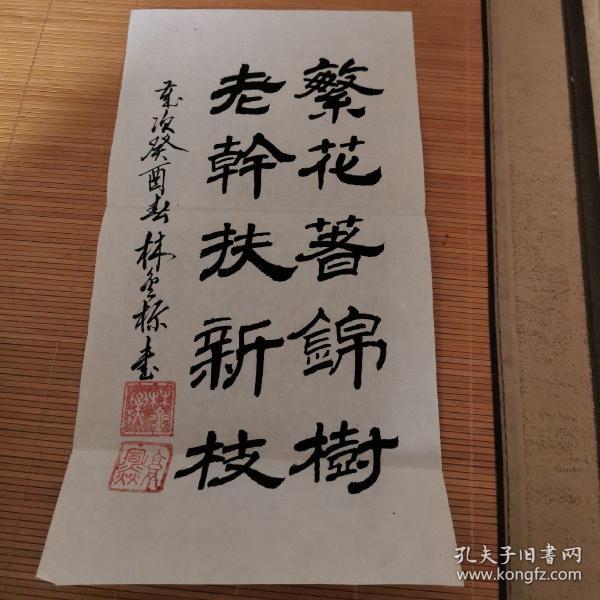 繁花著錦樹
老幹扶新枝
歲次癸酉春林金标書
孔夫子旧書网
www.kongfz.com